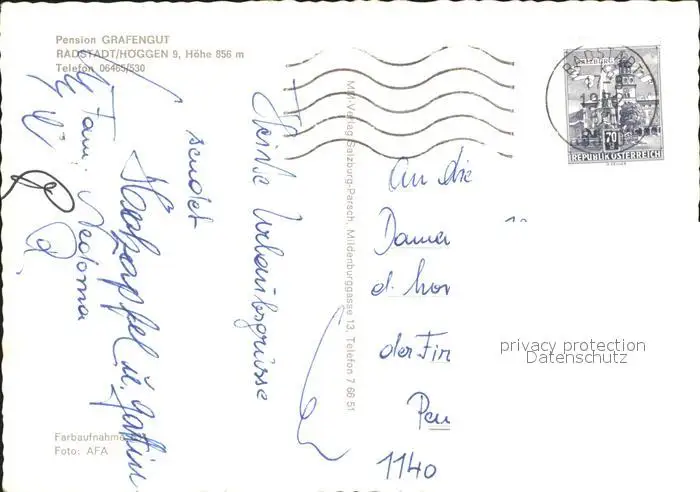 Pension GRAFENGUT
RADSTADT/HÖGGEN 9, Höhe 856 m
Telefon 06465/530
Herzliche Urlaubsgrüsse
sendet
Holzapfel u. Gattin
Fam. Nedoma
MM-Verlag Salzburg-Parsch, Mildenburggasse 13, Telefon 7 66 51
RADSTADT
70
REPUBLIK ÖSTERREICH
An die
Damen
d. hor
der Fir
Pen
1140
privacy protection
Datenschutz
Farbaufnahme
Foto: AFA